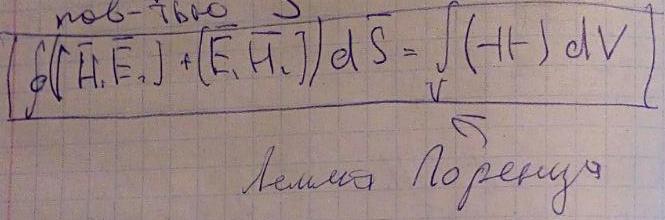 пов-тью S
∮([H̄₁Ē₂] + [Ē₁H̄₂]) dS̄ = ∫(-||-) dV
V
Лемма Лоренца